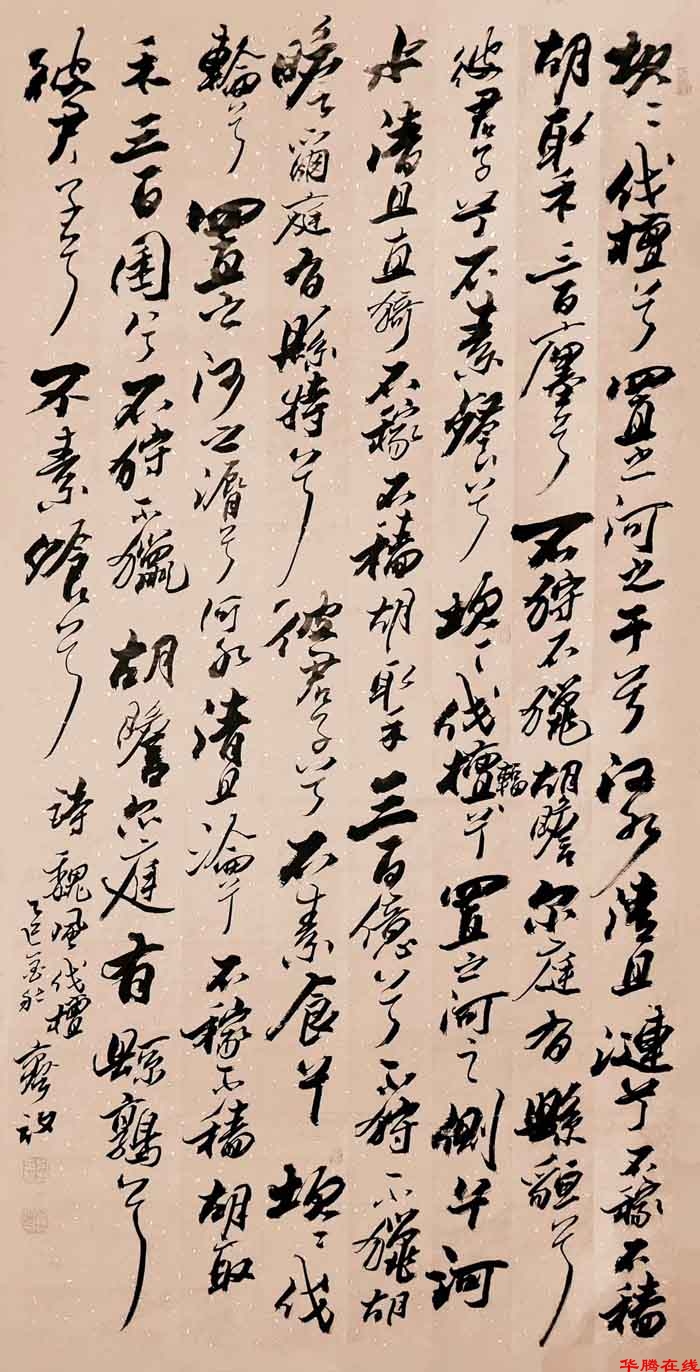 坎〻伐檀兮置之河之干兮河水清且漣兮不稼不穡
胡取禾三百廛兮不狩不獵胡瞻尔庭有縣貆兮
彼君子兮不素餐兮坎〻伐檀輻兮置之河之側兮河
水清且直猗不稼不穡胡取禾三百億兮不狩不獵胡
瞻爾庭有縣特兮彼君子兮不素食兮坎〻伐
輪兮置之河之漘兮河水清且淪兮不稼不穡胡取
禾三百囷兮不狩不獵胡瞻尔庭有縣鶉兮
彼君子兮不素飧兮
詩魏風伐檀
乙巳金秋
华腾在线